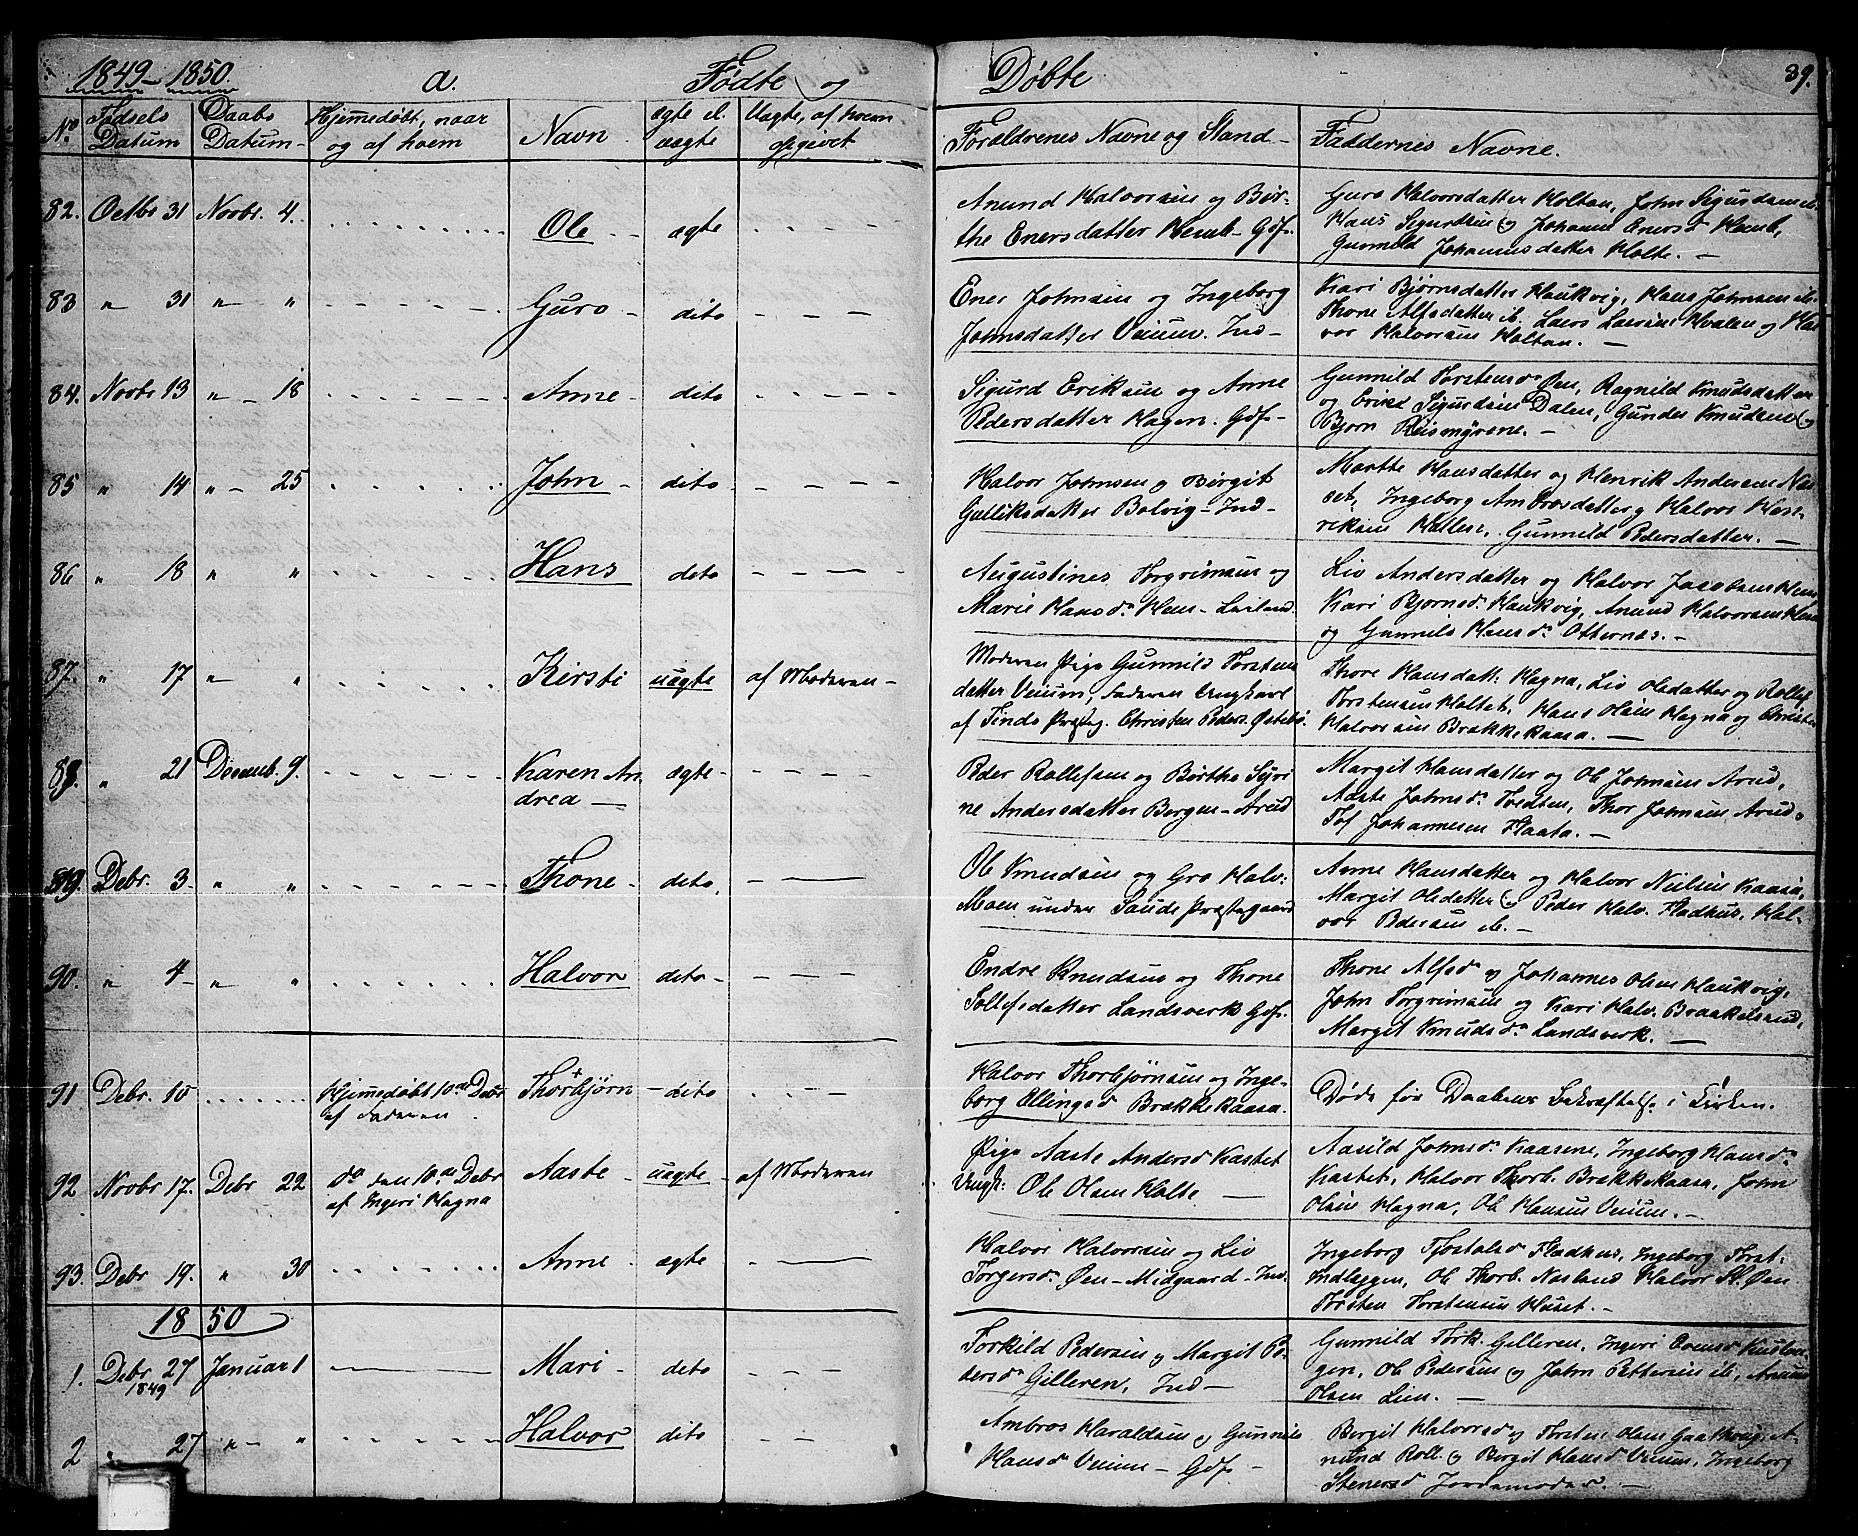 1849 - 1850. a. Fødte og Døbte 89.
No Fødsels Datum Daabs Datum Hjemmedøbt, naar og af hvem Navn ægte el. uægte Uægte, af hvem opgivet Forældrenes Navne og Stand Faddernes Navne.
82. Octbr 31 Novbr. 4. Ole ægte
Anund Halvorsen og Bir-
the Enersdatter Hemb. Gdf.
Guro Halvorsdatter Holtan, John Sigurdsen ib.
Hans Sigurdsen og Johanne Enersd Hemb,
Gunnild Johannesdatter Holte. -
83 " 31 " " Guro dito
Ener Johnsen og Ingeborg
Johnsdatter Veium. Ind-
Kari Bjørnsdatter Haukvig, Hans Johnsen ib.
Thone Alfsdatter ib. Lars Larsen Hvalen og Hal
vor Halvorsen Holtan. -
84. Novbr 13 " - 18 Anne dito
Sigurd Eriksen og Anne
Pedersdatter Hagen. Gdf-
Gunnild Torstensd Øen, Ragnild Knudsdatter
og Erik Sigurdsen Dalen, Gunder Knudsen og
Bjørn Reismyrene. -
85 " 14 " - 25 John dito
Halvor Johnsen og Birgit
Gulliksdatter Bolvig - Ind-
Marthe Hansdatter og Henrik Andersen Næs
set, Ingeborg Ambrosdatter og Halvor Hen-
riksen Gunnild Pedersdatter. -
86 " 18 " " Hans dito
Augustines Torgrimsen og
Marie Hansd. Hem -
Liv Andersdatter og Halvor Jacobsen Hem
Kari Bjørnsd. Haukvig, Anund Halvorsen Hem
og Gunnild Hansd. Otternæs. -
87. " 17 " " Kirsti uægte af Moderen -
Moderen Pige Gunnild Torstens
datter Veium, Faderen Ungkarl
af Tinds Præstg. Christen Peders. Østebø.
Thore Hansdatt. Hagna, Liv Oledatter og Rollef
Torstensen Holtet, Hans Olsen Hagna og Christen
Halvorsen Brækkekaasa. -
88. " 21 Decemb. 9. Karen An ægte
drea -
Peder Rollefsen og Birthe Syri
ne Andersdatter Borgen - Arud
Margit Hansdatter og Ole Johnsen Arud,
Aaste Johnsd. Tvedten, Thor Johnsen Arud.
Tof Johannesen Flaata. -
89. Debr. 3. " " Thone dito,
Ole Knudsen og Gro Halv:
Moen under Saude Præstegaard
Anne Hansdatter og Halvor Neilsen Kaasa,
Margit Oledatter og Peder Halv. Fladhus, Hal-
vor Pedersen ib. -
90. " 4 " " Halvor dito
Endre Knudsen og Thone
Tollefsdatter Landsverk Gdf.
Thone Alfsd og Johannes Olsen Haukvig,
John Torgrimsen og Kari Halv. Braakelsrud,
Margit Knudsd. Landsverk. -
91 Debr. 10 Hjemmedøbt 10de Debr Thorbjørn dito
af Faderen
Halvor Thorbjørnsen og Inge-
borg Ellingsd Brækkekaasa.
Døde før Daabens Bekræftelse i Kirken.
92 Novbr 17. Debr 22 do den 10de Debr Aaste uægte af Moderen
af Ingeri Hagna
Pige Aaste Andersd Kastet
Ungk: Ole Olsen Holte -
Aasild Johnsd. Kaasene, Ingeborg Hansd.
Kastet, Halvor Thorb. Brækkekaasa, John
Olsen Hagna, Ole Hansen Veium. -
93. Debr 19. " 30 Anne ægte
Halvor Halvorsen og Liv
Torgersd. Øen - Midgaard - Ind.
Ingeborg Tjostolsd Fladhus, Ingeborg Torst.
Indleggen, Ole Thorb. Nasland Halvor St. Øen
Torsten Torstensen Huset. -
1850
1. Debr 27 Januar 1 Mari dito
1849
Torkild Pedersen og Margit Pe
dersd Gilleren, Ind -
Gunnild Tork. Gilleren, Ingeri Evensd
gen, Ole Pedersen og John Pettersen ib, Anund
Olsen Lien. -
2 " 27 " " Halvor dito
Ambros Haraldsen og Gunnild
Hansd Veium - Gdf -
Bergit Halvorsd og Torsten Olsen A-
nund Roll. og Bergit Hansd Veium, Ingeborg
Stenersd Jordemoder. -